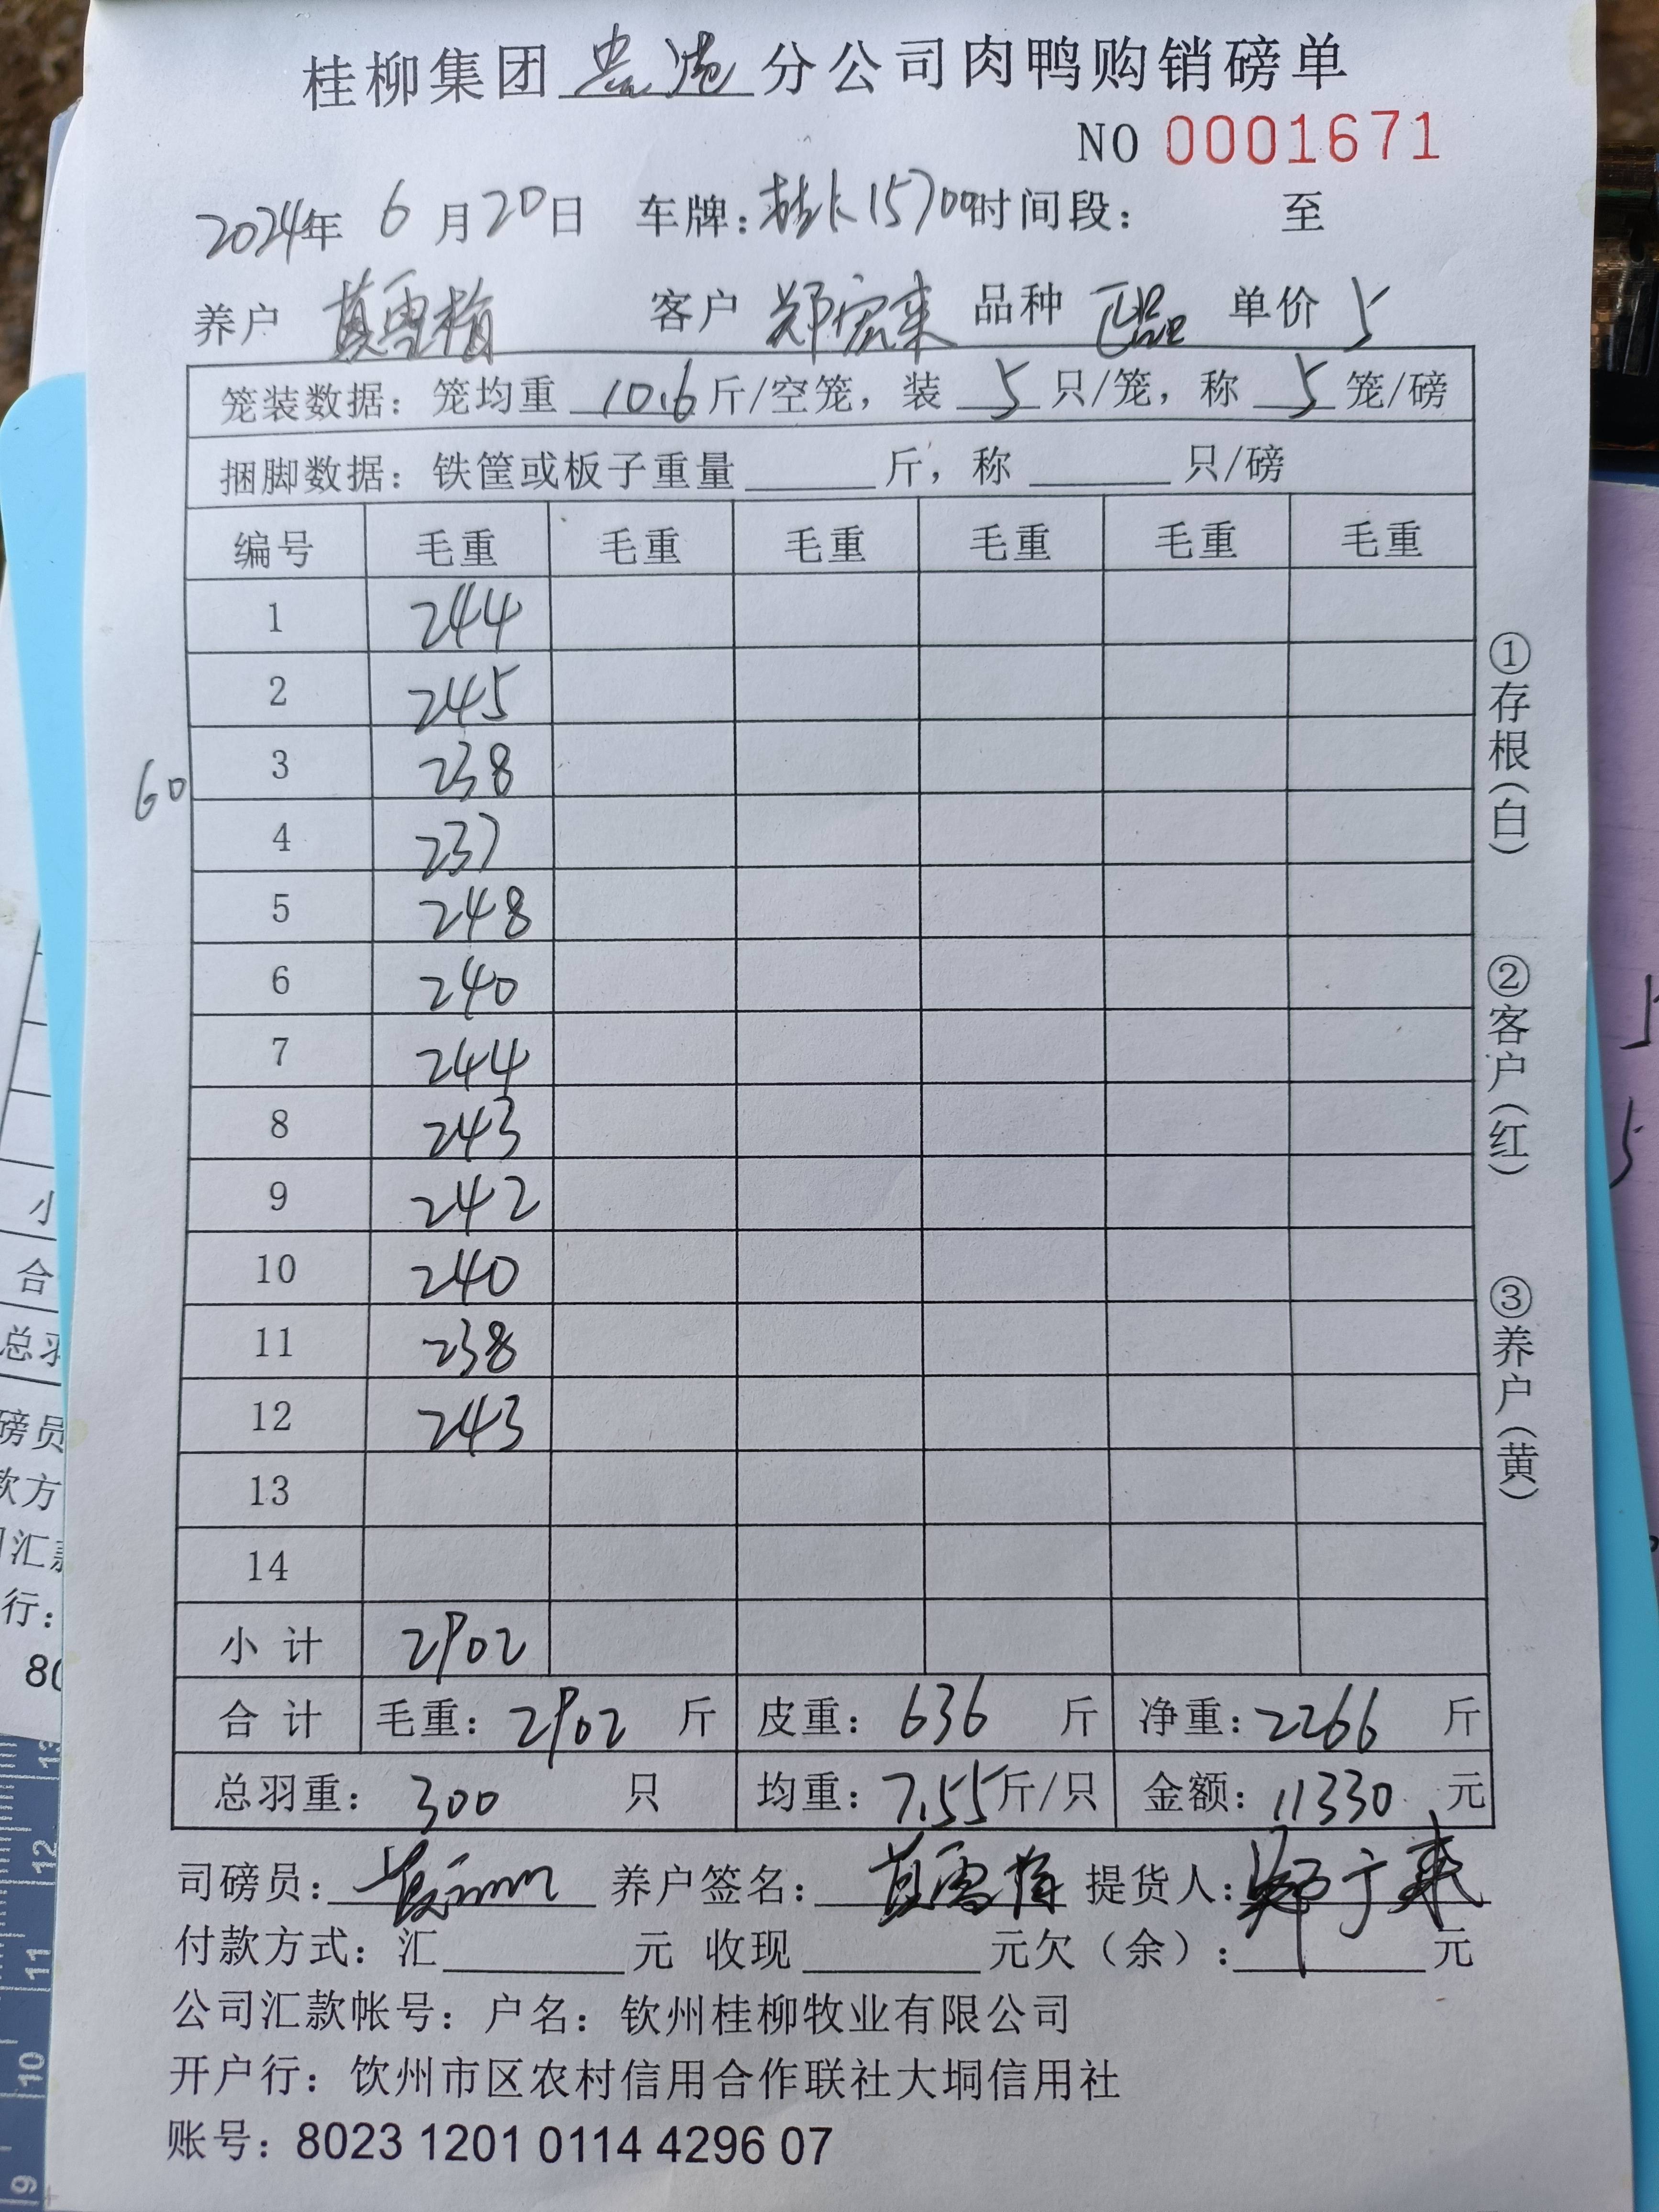 桂柳集团贵港分公司肉鸭购销磅单
NO 0001671
2024年 6月20日 车牌: 桂K15700 时间段: 至
养户 客户 郑宏来 品种 正品 单价 5
笼装数据: 笼均重 10.6 斤/空笼, 装 5 只/笼, 称 5 笼/磅
捆脚数据: 铁筐或板子重量 斤, 称 只/磅
编号 毛重 毛重 毛重 毛重 毛重 毛重
1 244
2 245
3 238
60
4 237
5 248
6 240
7 244
8 243
9 242
10 240
11 238
12 243
13
14
小计 2902
合计 毛重: 2902 斤 皮重: 636 斤 净重: 2266 斤
总羽重: 300 只 均重: 7.55 斤/只 金额: 11330 元
司磅员: 养户签名: 提货人:
付款方式: 汇 元 收现 元欠(余): 元
公司汇款帐号: 户名: 钦州桂柳牧业有限公司
开户行: 饮州市区农村信用合作联社大垌信用社
账号: 8023 1201 0114 4296 07
①存根(白)
②客户(红)
③养户(黄)